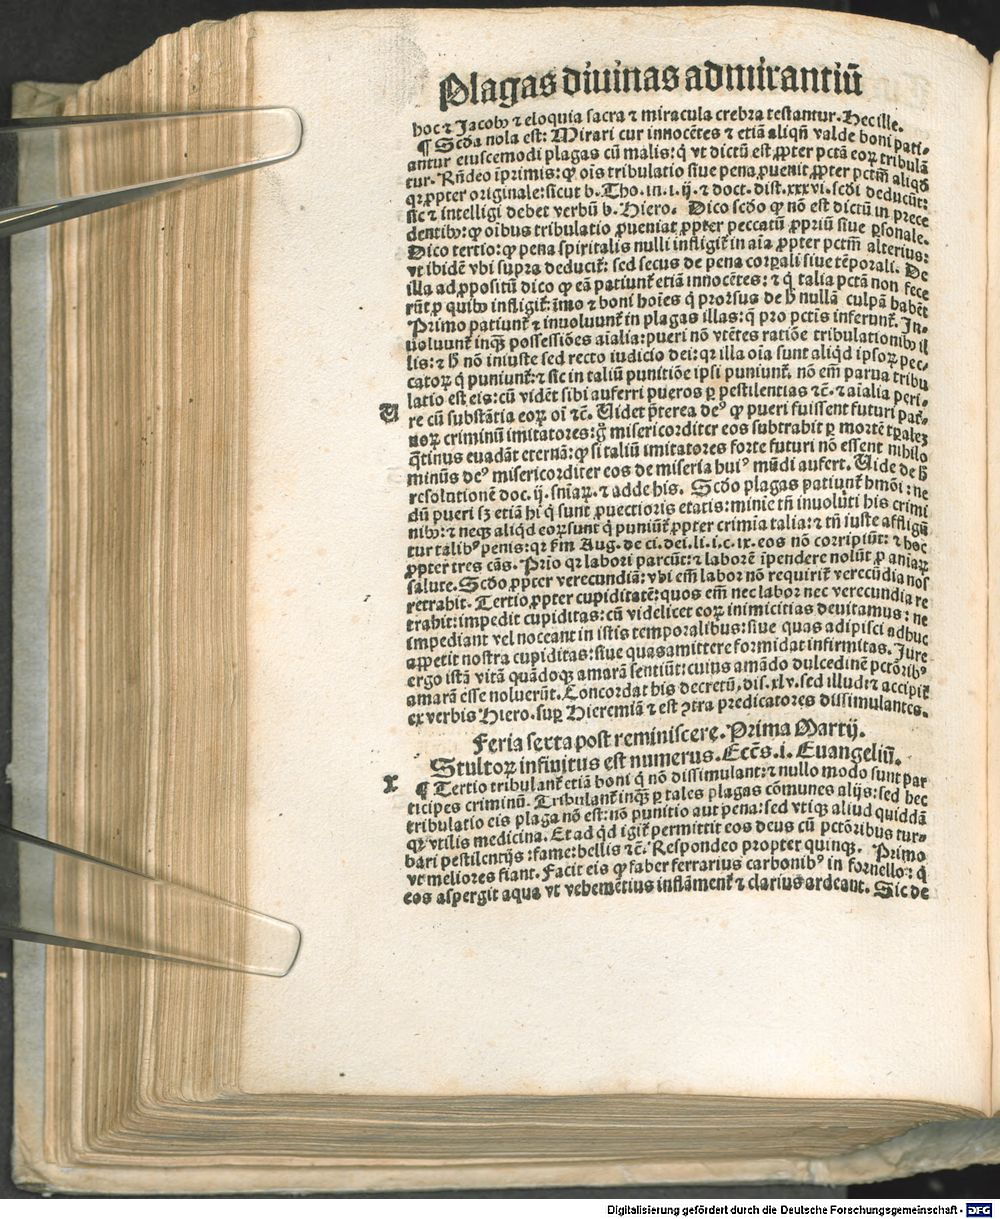 Plagas diuinas admirantiū
hoc ⁊ Jacobꝰ ⁊ eloquia sacra ⁊ miracula crebra testantur. Hec ille.
¶ Scd̄a nola est: Mirari cur innocētes ⁊ etiā aliqn̄ valde boni pati-
antur eiuscemodi plagas cū malis: q̄ vt dictū est ꝓpter pctā eoꝝ tribulā
tur. Rn̄deo īprimis: ꝙ oīs tribulatio siue pena ꝓuenit ꝓpter pctm̄ aliqd̄
qꝛ ꝓpter originale: sicut b. Tho. in. i. ij. ⁊ doct. dist. xxxvi. scd̄i deducūt:
sic ⁊ intelligi debet verbū b. Hiero. Dico scd̄o ꝙ nō est dictū in prece
dentibꝰ: ꝙ oībus tribulatio ꝓueniat ꝓpter peccatū ꝓpriū siue ꝑsonale.
Dico tertio: ꝙ pena spiritalis nulli infligit̄ in aīa ꝓpter pctm̄ alterius:
vt ibidē vbi supra deducit̄: sed secus de pena corꝑali siue tēporali. De
illa ad ꝓpositū dico ꝙ eā patiunt̄ etiā innocētes: ⁊ q̄ talia pctā non fece
rūt ꝓ quibꝰ infligit̄: īmo ⁊ boni hoīes q̄ prorsus de h̄ nullā culpā habēt
Primo patiunt̄ ⁊ inuoluunt̄ in plagas illas: q̄ pro pctis inferunt̄. In-
uoluunt̄ inqꝫ possessiōes aialia: pueri nō vtētes ratiōe tribulationibꝰ il
lis: ⁊ h̄ nō iniuste sed recto iudicio dei: qꝛ illa oīa sunt aliqd̄ ipsoꝝ pec-
catoꝝ q̄ puniunt̄: ⁊ sic in taliū punitiōe ipsi puniunt̄. nō em̄ parua tribu
latio est eis: cū vidēt sibi auferri pueros ꝑ pestilentias ⁊c̄. ⁊ aialia peri-
V
re cū substātia eoꝝ oī ⁊c̄. Videt p̄terea deꝰ ꝙ pueri fuissent futuri pat̄-
noꝝ criminū imitatores: g̊ misericorditer eos subtrahit ꝑ mortē tꝑalez
q̄tinus euadāt eternā: ꝙ si taliū imitatores forte futuri nō essent nihilo
minūs deꝰ misericorditer eos de miseria huiꝰ mūdi aufert. Vide de h̄
resolutionē doc. ij. sn̄iaꝝ. ⁊ adde his. Scd̄o plagas patiunt̄ hmōi: ne
dū pueri sꝫ etiā hi q̄ sunt ꝓuectioris etatis: minie tn̄ inuoluti his crimi
nibꝰ: ⁊ neqꝫ aliqd̄ eoꝝ sunt q̄ puniūt̄ ꝓpter crimīa talia: ⁊ tn̄ iuste affligū
tur talibꝰ penis: qꝛ fm̄ Aug. de ci. dei. li. i. c. ix. eos nō corripiūt: ⁊ hoc
ꝓpter tres cās. Prīo qꝛ labori parcūt: ⁊ laborē īpendere nolūt ꝓ aniaꝝ
salute. Scd̄o ꝓpter verecundiā: vbi em̄ labor nō requirit̄ verecūdia nos
retrahit. Tertio ꝓpter cupiditatē: quos em̄ nec labor nec verecundia re
trahit: impedit cupiditas: cū videlicet eoꝝ inimicitias deuitamus: ne
impediant vel noceant in istis temporalibus: siue quas adipisci adhuc
aꝑpetit nostra cupiditas: siue quas amittere formidat infirmitas. Jure
ergo istā vitā quādoqꝫ amarā sentiūt: cuius amādo dulcedinē pctōribꝰ
amarā esse noluerūt. Concordat his decretū, dis. xlv. sed illud: ⁊ accipit̄
ex verbis Hiero. suꝑ Hieremiā ⁊ est ↄtra predicatores dissimulantes.
Feria sexta post reminiscere. Prima Martij.
Stultoꝝ infinitus est numerus. Eccēs. i. Euangeliū.
X
¶ Tertio tribulant̄ etiā boni q̄ nō dissimulant: ⁊ nullo modo sunt par
ticipes criminū. Tribulant̄ inqꝫ ꝑ tales plagas cōmunes alijs: sed hec
tribulatio eis plaga nō est: nō punitio aut pena: sed vtiqꝫ aliud quiddā
qꝛ vtilis medicina. Et ad qd̄ igit̄ permittit eos deus cū pctōribus tur-
bari pestilentijs: fame: bellis ⁊c̄. Respondeo propter quinqꝫ. Primo
vt meliores fiant. Facit eis ꝙ faber ferrarius carbonibꝰ in fornello: q̄
eos aspergit aqua vt vehemētius inflament̄ ⁊ clarius ardeant. Sic de
Digitalisierung gefördert durch die Deutsche Forschungsgemeinschaft - DFG